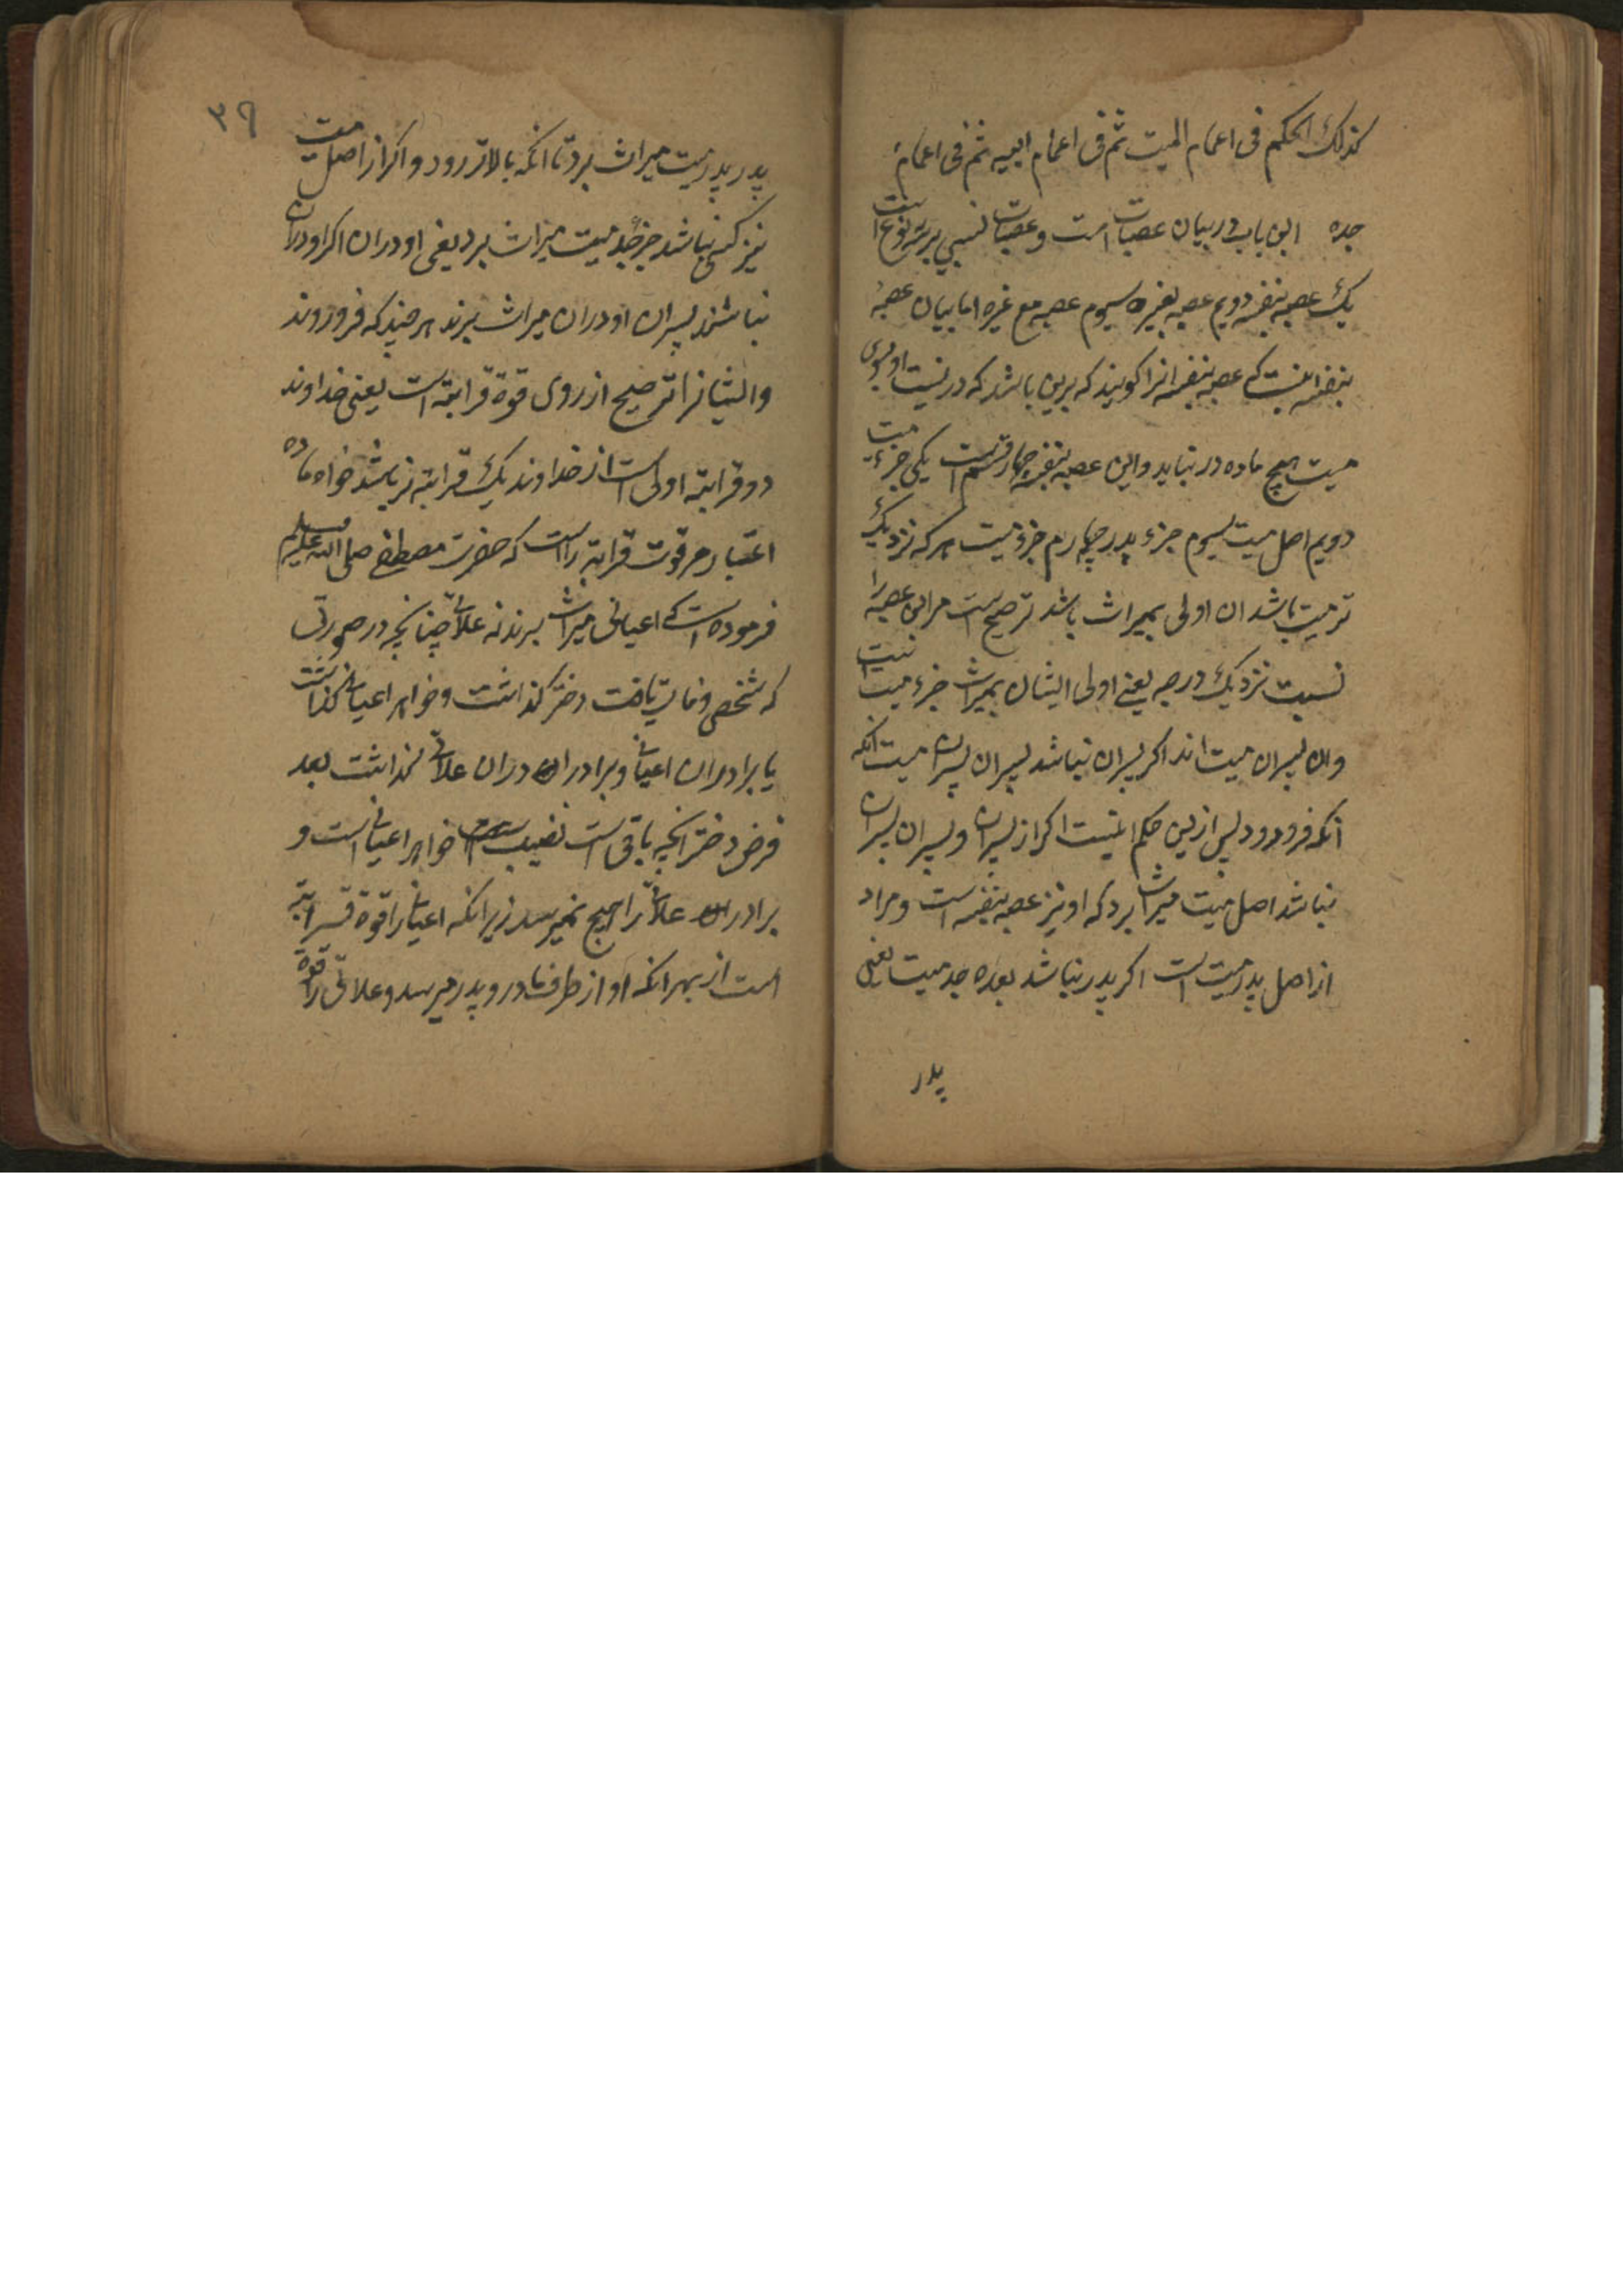 كذلك الحكم فى اعمام الميت ثم فى اعمام ابيه ثم فى اعمام
جده این باب در بیان عصبات است و عصبات نسبی بر سه نوع است
یک عصبه بنفسه دویم عصبه بغیره سیوم عصبه مع غیره اما بیان عصبه
بنفسه اینست که عصبه بنفسه انرا کویند که برین باشد که در نسبت او بسوی
میت هیچ ماده در نیاید و این عصبه بنفسه چهار قسم است یکی جزء میت
دویم اصل میت سیوم جزء پدر چهارم جزء میت هر که نزدیک
تر میت باشد ان اولی بمیراث باشد ترجیح است مر این عصبه را
نسبت نزدیک درجه یعنی اولی ایشان بمیراث جزء میت است
وان پسران میت اند اکر پسران نباشد پسران پسران میت انکه
انکه فرو رود پس ازین حکم اینست اکر از پسران و پسران پسران
نباشد اصل میت میراث برد که او نیز عصبه بنفسه است و مراد
از اصل پدر میت است اکر پدر نباشد بعده جد میت یعنی
پدر
۳۹
پدر پدر میت میراث برد تا انکه بالاتر رود و اکر از اصل میت
نیز کسی نباشد جزء جد میت میراث برد یعنی اودران اکر اودران
نباشند پسران اودران میراث برند هر چند که فرو روند
و ایشانرا ترجیح از روی قوة قرابته است یعنی خداوند
دو قرابته اولی است از خداوند یک قرابته نر باشد خواه ماده
اعتبار مر قوت قرابته راست که حضرت مصطفی صلی الله علیه وسلم
فرموده است که اعیانی میراث برند نه علاتی چنانچه در صورتی
که شخصی وفات یافت دختر کذاشت و خواهر اعیانی کذاشت
یا برادران اعیانی و برادران دران علاتی کذاشت بعد
فرض دختر انچه باقی است نصیب خواهر اعیانی است و
برادران علاتی را هیچ نمیرسد زیرا انکه اعیانی را قوة قرابته
است از بهر انکه او از طرف مادر و پدر میرسد و علاتی را قوة